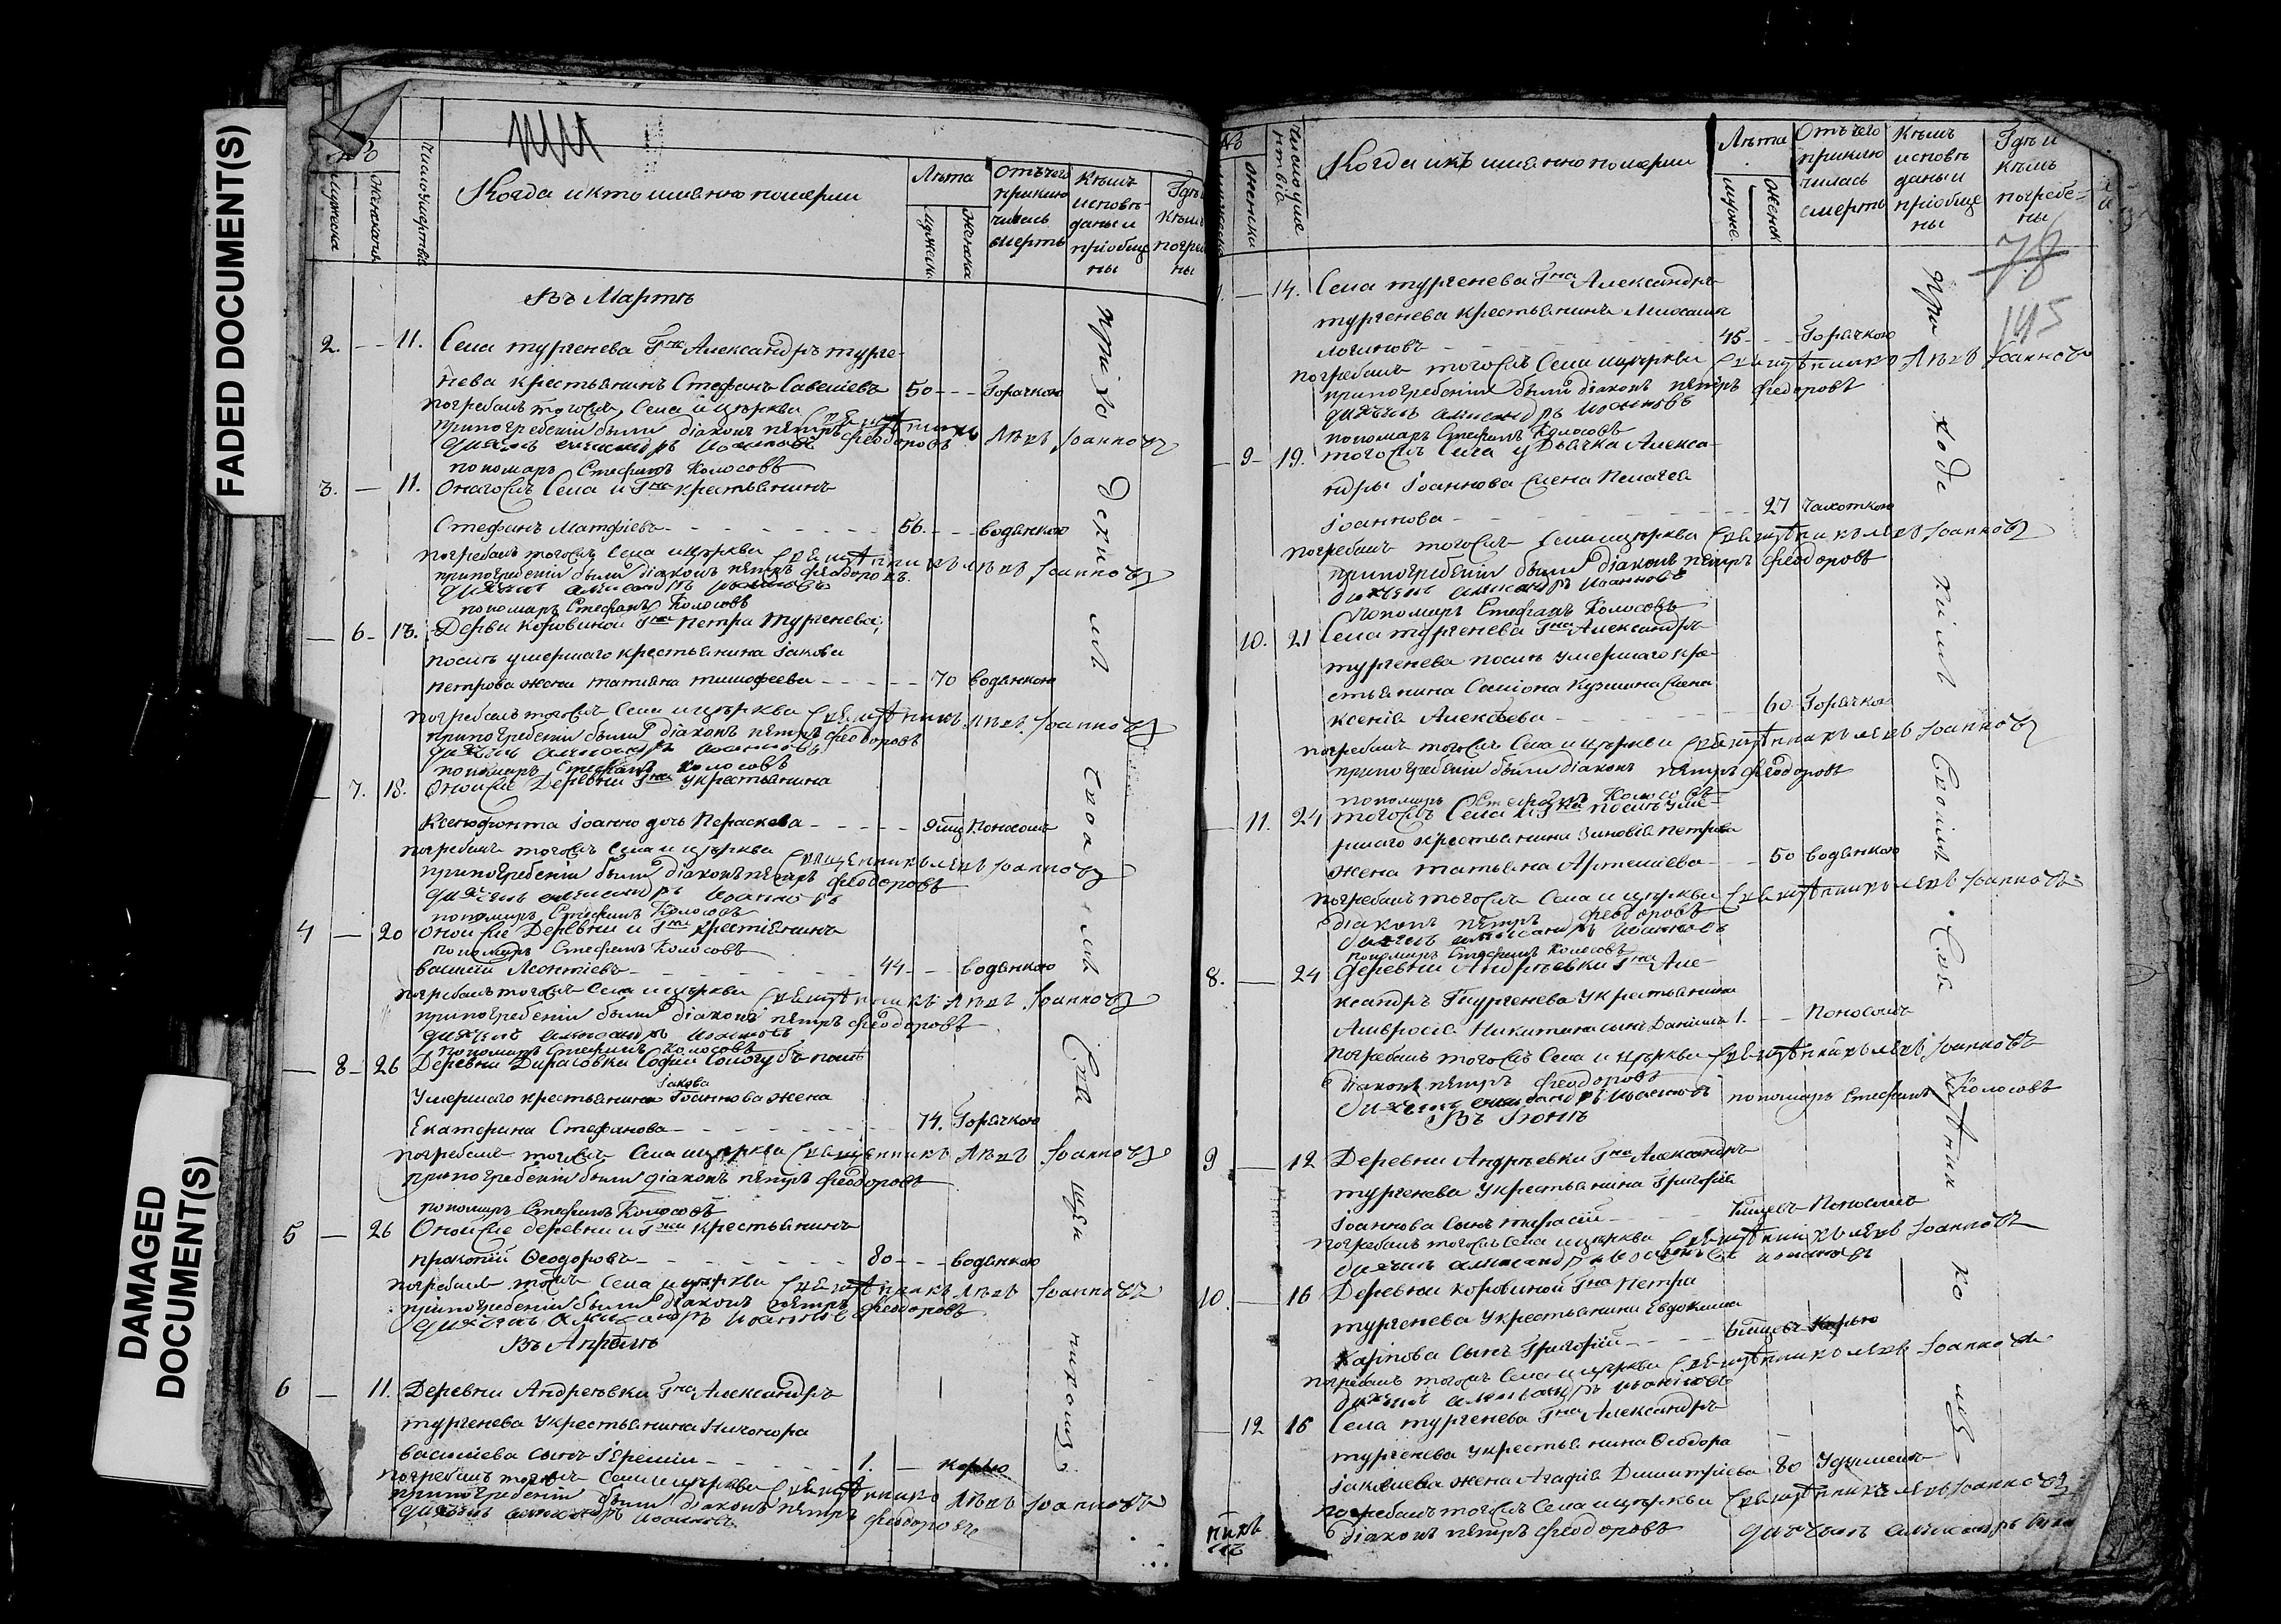 FADED DOCUMENT(S)
DAMAGED DOCUMENT(S)
мужеска
женскаго
Число умертвія
Когда и кто имянно померли
Лѣта
мужеск
женска
Отъ чего приключилась смерть
Кѣмъ исповѣданы и пріобщены
Гдѣ и кѣмъ погребены
Въ Мартѣ
2. — 11. Села тургенева Гна Александръ турге-
нева крестьянинъ Стефанъ Савелiевъ 50 — Горячкою
погребалъ тогожъ Села и церкви священникъ Левъ Iоанновъ
при погребенiи были дiаконъ петръ феодоровъ
дьячекъ александръ иоанновъ
пономаръ Стефанъ Колосовъ
3. — 11. Онагожъ Села и Гна крестьянинъ
Стефанъ Матфiевъ 56. — водянкою
погребалъ тогожъ Села и церкви священникъ Левъ Iоанновъ
при погребенiи были дiаконъ петръ феодоровъ
дьячекъ александръ иоанновъ
пономаръ Стефанъ Колосовъ
— 6 — 18. Дервни Коровиной Гна Петра Тургенева
послѣ умершаго крестьянина Iакова
петрова жена татiяна тимофеева 70 водянкою
погребалъ тогожъ Села и церкви священникъ Левъ Iоанновъ
при погребенiи были дiаконъ петръ феодоровъ
дьячекъ александръ иоанновъ
пономаръ Стефанъ Колосовъ
— 7. 18. Оной же Деревни Гна у крестьянина
Ксенофонта Iоанно дочь Параскева 9 мцъ Поносомъ
погребалъ тогожъ Села и церкви
священникъ Левъ Iоанновъ
при погребенiи были дiаконъ петръ феодоровъ
дьячекъ александръ иоанновъ
пономаръ Стефанъ Колосовъ
4 — 20 Оной же Деревни и Гна крестiянинъ
пономаръ Стефанъ Колосовъ
василiй Леонтiевъ 44 — водянкою
погребалъ тогожъ Села и церкви священникъ Левъ Iоанновъ
при погребенiи были дiаконъ петръ феодоровъ
дьячекъ александръ иоанновъ
пономаръ Стефанъ Колосовъ
— 8 — 26 Деревни
умершаго крестьянина Iакова Iоаннова жена
Екатерина Стефанова 74. Горячкою
погребалъ тогожъ Села и церкви священникъ Левъ Iоанновъ
при погребенiи были дiаконъ петръ феодоровъ
пономаръ Стефанъ Колосовъ
5 — 26 Оной же деревни и Гжи крестьянинъ
прокопiй Ѳеодоровъ 80 — водянкою
погребалъ тогожъ Села и церкви священникъ Левъ Iоанновъ
при погребенiи были дiаконъ петръ феодоровъ
дьячекъ александръ иоанновъ
Въ Апрѣлѣ
6 — 11. Деревни Андреевки Гна Александръ
тургенева у крестьянина Никонора
василiева сынъ 1. — корью
погребалъ тогожъ Села и церкви священникъ Левъ Iоанновъ
при погребенiи были дiаконъ петръ феодоровъ
дьячекъ александръ иоанновъ
Число дня
Когда и кто имянно померли
Лѣта
муже.
женск
Отъ чего приключилась смерть
Кѣмъ исповѣданы и пріобщены
Гдѣ и кѣмъ погребены
78
145
14. Села тургенева Гна Александръ
тургенева крестьянинъ Михаилъ
логиновъ 45 — Горячкою
погребалъ тогожъ Села и церкви священникъ Левъ Iоанновъ
при погребенiи были дiаконъ петръ феодоровъ
дьячекъ александръ иоанновъ
пономаръ Стефанъ Колосовъ
— 9 — 19. тогожъ Села у Дьячка Алекса-
ндры Iоаннова жена Пелагея
Iоаннова 27 чахоткою
погребалъ тогожъ Села и церкви священникъ Левъ Iоанновъ
при погребенiи были дiаконъ петръ феодоровъ
дьячекъ александръ иоанновъ
пономаръ Стефанъ Колосовъ
10. 21 Села тургенева Гна Александръ
тургенева послѣ умершаго кре-
стьянина Симiона Кузмина жена
Ксенiя Алексѣева 60 Горячкою
погребалъ тогожъ Села и церкви священникъ Левъ Iоанновъ
при погребенiи были дiаконъ петръ феодоровъ
пономаръ Стефанъ Колосовъ
11. 24 тогожъ Села и Гна послѣ уме-
ршаго крестьянина Зиновiя петрова
жена татьяна Артемiева 50 водянкою
погребалъ тогожъ Села и церкви священникъ Левъ Iоанновъ
дiаконъ петръ феодоровъ
дьячекъ александръ иоанновъ
пономаръ Стефанъ Колосовъ
8. — 24 деревни Андрѣевки Гна Але-
ксандръ Тургенева у крестьянина
Амвросiя Никитина сынъ Данiилъ 1. — Поносомъ
погребалъ тогожъ Села и церкви священникъ Левъ Iоанновъ
дiаконъ петръ феодоровъ
дьячекъ александръ иоанновъ пономаръ Стефанъ Колосовъ
Въ Iюнѣ
9 — 12 Деревни Андрѣевки Гна Александръ
тургенева у крестьянина Григорiя
Iоаннова сынъ Поносомъ
погребалъ тогожъ Села и церкви священникъ Левъ Iоанновъ
дьячекъ александръ иоанновъ
10. — 16 Деревни Коровиной Гна Петра
тургенева у крестьянина Евдокима
Карпова сынъ Григорiй 6 мцевъ Корью
погребалъ тогожъ Села и церкви священникъ Левъ Iоанновъ
дьячекъ александръ иоанновъ
— 12 16 Села тургенева Гна Александръ
тургенева у крестьянина Ѳеодора
Iаковлева жена Агафiя Димитрiева 80 Удушьемъ
погребалъ тогожъ Села и церкви священникъ Левъ Iоанновъ
дiаконъ петръ феодоровъ дьячекъ александръ